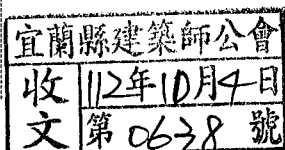 宜蘭縣建築師公會
收文
112年10月4日
第0638號